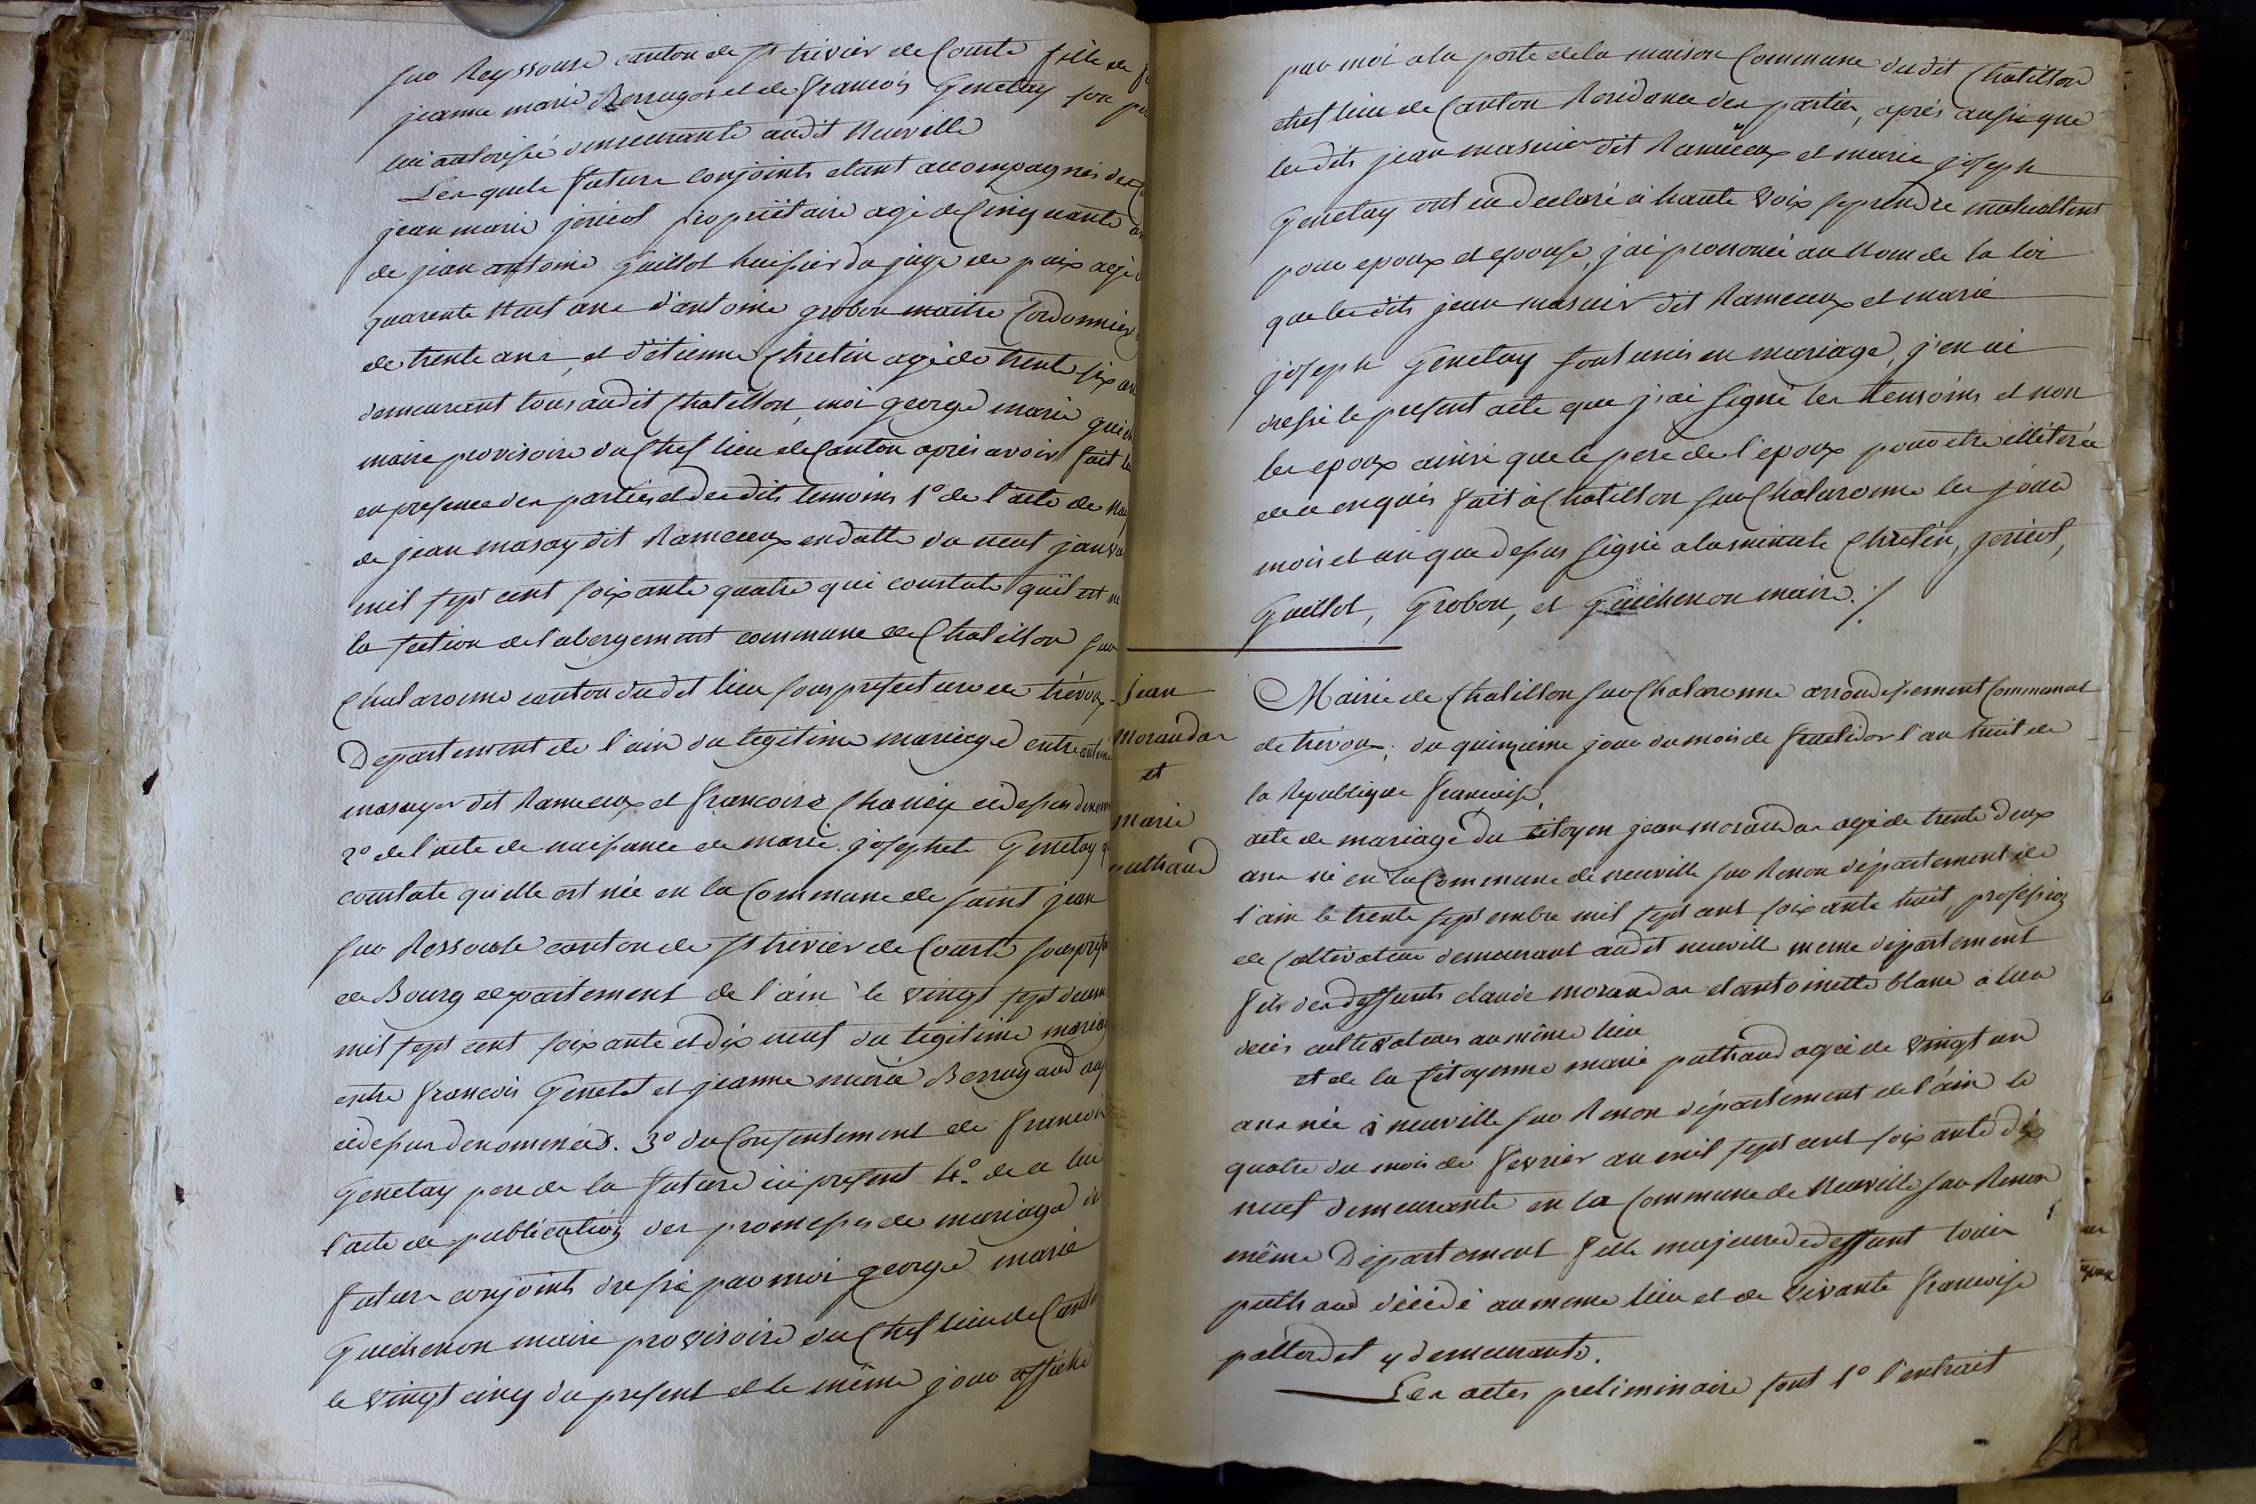 sur Reyssouse canton de St trivier de Courte fille de
jeanne marie Berrugos et de francois Genetay son
lui autorisée demeurante audit Neuville
Les quels futurs conjoints etant accompagnés de
jean marie jericot propriétaire agé de Cinquante
de jean antoine Guillot huissier du juge de paix agé
quarente huit ans d'antoine grobon maitre Cordonnier
de trente ans, et d'étienne Chretin agé de trente six ans
demeurant tous audit Chatillon, moi george marie
maire provisoire du Chef lieu de Canton après avoir fait
en presence des parties et des dits temoins 1o de l'acte de
de jean masoy dit Rameaux en datte du neuf
mil sept cent soixante quatre qui constate qu'il est
la section de l'abergement commune de Chatillon sur
Chalaronne canton dudit lieu sous prefecture de trévoux
Departement de l'ain du legitime mariage entre
masoyer dit Rameaux et francoise cidessus
2o de l'acte de naissance de marie josephete Genetay
constate qu'elle est née en la Commune de saint jean
sur Ressouse canton de St trivier de Courte
de Bourg departement de l'ain le vingt sept
mil sept cent soixante et dix neuf du legitime
entre francois Genetet et jeanne marie Berrugand
cidessus denommés. 3o du Consentement de francois
Genetay pere de la future ici present 4o de ce lui
l'acte de publication des promesses de mariage
futurs conjoints dressé par moi george marie
Guichenon maire provisoire du Chef lieu de
le vingt cinq du present et le même jour affiché
par moi a la porte de la maison Commune dudit Chatillon
chef lieu de Canton Residance des parties, aprés aussi que
les dits jean masuier dit Rameaux et marie joseph
Genetay ont eu declaré à haute voix se prendre
pour epoux et epouse, j'ai prononcé au Nom de la loi
que les dits jean masuir dit Rameaux et marie
joseph Genetay sont unis en mariage, j'en ai
dressé le present acte que j'ai signé les temoins et non
les epoux ainsi que le pere de l'epoux pour etre
de ce enquis fait à Chatillon sur Chalaronne les jour
mois et an que dessus signé a la minute Chretin, jericot,
Guillot, Grobon, et Guichenon maire ./.
jean
morandas
et
marie
puthaud
Mairie de Chatillon sur Chalaronne arrondissement Communal
de trévoux, du quinzieme jour du mois de fructidor l'an huit de
la Republique francaise,
acte de mariage du citoyen jean morandas agé de trente deux
ans né en la Commune de neuville sur Renon département de
l'ain le trente septembre mil sept cent soixante huit, profession
de Coltivateur demeurant audit neuville meme département
fils des deffunts claude morandas et antoinette blanc
decés cultivateur au même lieu
et de la Citoyenne marie puthaud agée de vingt un
ans née à neuville sur Renon département de l'ain le
quatre du mois de fevrier an mil sept cent soixante dix
neuf demeurante en la Commune de Neuville sur Renon
même Departement fille majeure de deffunt
puthaud décédé au meme lieu et de vivante francoise
y demeurante.
Les actes preliminaire sont 1o l'extrait